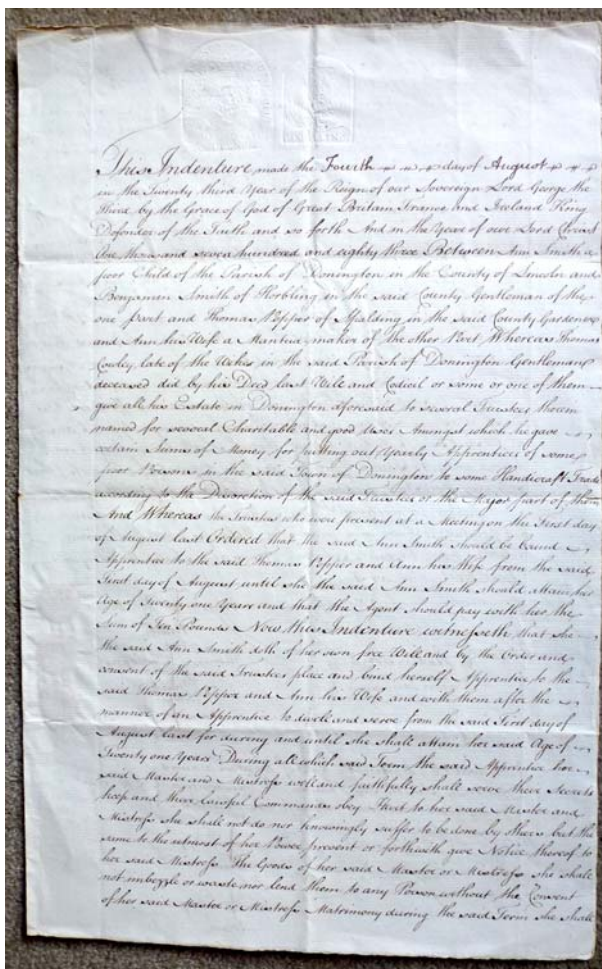 This Indenture made the Fourth day of August
in the Twenty third Year of the Reign of our Sovereign Lord George the
Third by the Grace of God of Great Britain France and Ireland King
Defender of the Faith and so forth And in the Year of our Lord Christ
One thousand seven hundred and eighty three Between Ann Smith a
poor Child of the Parish of Donington in the County of Lincoln and
Benjamin Smith of Horbling in the said County Gentleman of the
one part and Thomas Popper of Spalding in the said County Gardener
and Ann his Wife a Mantua maker of the other Part Whereas Thomas
Cowley late of the Wikes in the said Parish of Donington Gentleman
deceased did by his Deed last Will and Codicil or some or one of them
give all his Estate in Donington aforesaid to several Trustees therein
named for several Charitable and good Uses Amongst which he gave
certain Sums of Money for putting out Yearly Apprentices of some
poor Persons in the said Town of Donington to some Handicraft Trade
according to the Discretion of the said Trustees or the Major part of them
And Whereas the Trustees who were present at a Meeting on the First day
of August last Ordered that the said Ann Smith should be bound
Apprentice to the said Thomas Popper and Ann his Wife from the said
First day of August until she the said Ann Smith should Attain her
Age of Twenty one Years and that the Agent should pay with her the
Sum of Ten Pounds Now this Indenture witnesseth that she
the said Ann Smith doth of her own free Will and by the Order and
consent of the said Trustees place and bind herself Apprentice to the
said Thomas Popper and Ann his Wife and with them after the
manner of an Apprentice to dwell and serve from the said First day of
August last for during and until she shall attain her said Age of
Twenty one Years During all which said Term the said Apprentice her
said Master and Mistress well and faithfully shall serve their Secrets
keep and their lawful Commands obey Hurt to her said Master and
Mistress she shall not do nor knowingly suffer to be done by others but the
same to the utmost of her Power prevent or forthwith give Notice thereof to
her said Mistress The Goods of her said Master or Mistress she shall
not imbezzle or waste nor lend them to any Person without the Consent
of her said Master or Mistress Matrimony during the said Term she shall